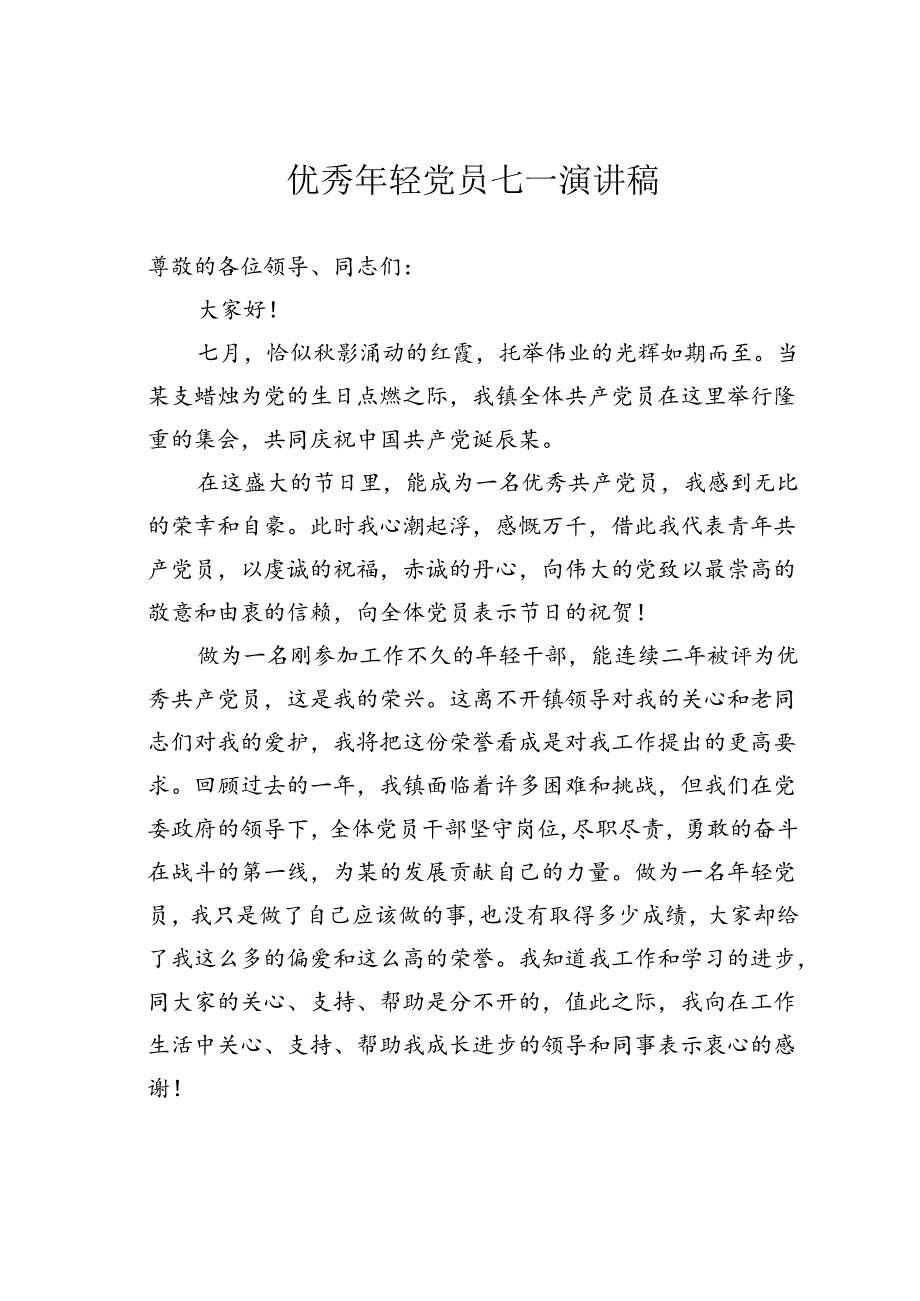 优秀年轻党员七一演讲稿
尊敬的各位领导、同志们：
大家好！
七月，恰似秋影涌动的红霞，托举伟业的光辉如期而至。当
某支蜡烛为党的生日点燃之际，我镇全体共产党员在这里举行隆
重的集会，共同庆祝中国共产党诞辰某。
在这盛大的节日里，能成为一名优秀共产党员，我感到无比
的荣幸和自豪。此时我心潮起浮，感慨万千，借此我代表青年共
产党员，以虔诚的祝福，赤诚的丹心，向伟大的党致以最崇高的
敬意和由衷的信赖，向全体党员表示节日的祝贺！
做为一名刚参加工作不久的年轻干部，能连续二年被评为优
秀共产党员，这是我的荣兴。这离不开镇领导对我的关心和老同
志们对我的爱护，我将把这份荣誉看成是对我工作提出的更高要
求。回顾过去的一年，我镇面临着许多困难和挑战，但我们在党
委政府的领导下，全体党员干部坚守岗位,尽职尽责，勇敢的奋斗
在战斗的第一线，为某的发展贡献自己的力量。做为一名年轻党
员，我只是做了自己应该做的事,也没有取得多少成绩，大家却给
了我这么多的偏爱和这么高的荣誉。我知道我工作和学习的进步，
同大家的关心、支持、帮助是分不开的，值此之际，我向在工作
生活中关心、支持、帮助我成长进步的领导和同事表示衷心的感
谢！